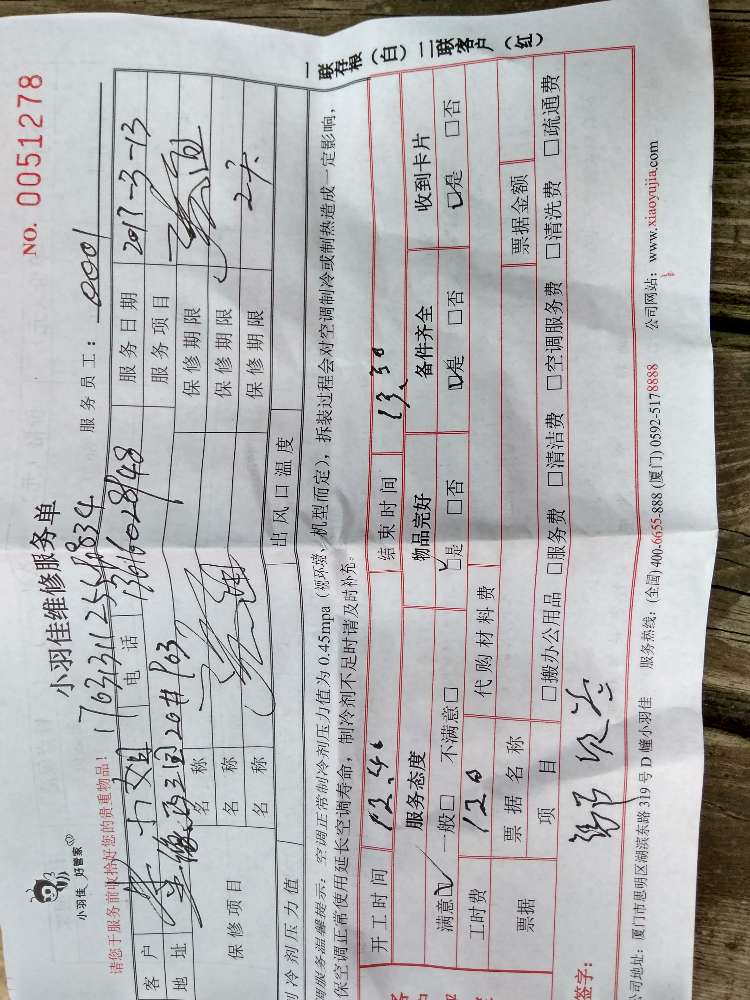 小羽佳 好管家
小羽佳维修服务单
NO. 0051278
请您于服务前收拾好您的贵重物品!
服务员工: 0001
客户
电话 13616028948
服务日期 2017-3-13
地址
服务项目
保修项目
名称
保修期限
名称
保修期限
名称
保修期限
制冷剂压力值
出风口温度
调服务温馨提示: 空调正常制冷剂压力值为 0.45mpa (视环境、机型而定), 拆装过程会对空调制冷或制热造成一定影响,
保空调正常使用延长空调寿命, 制冷剂不足时请及时补充。
一联存根(白) 二联客户(红)
开工时间 12.40
结束时间 13.30
服务态度
物品完好
备件齐全
收到卡片
满意☑ 一般□ 不满意□
☑是 □否
☑是 □否
☑是 □否
工时费 120
代购材料费
票据
票据名称
票据金额
项目
□搬办公用品 □服务费 □清洁费 □空调服务费 □清洗费 □疏通费
签字:
公司地址: 厦门市思明区湖滨东路 319 号 D 幢小羽佳 服务热线: (全国) 400-6655-888 (厦门) 0592-5178888 公司网站: www.xiaoyujia.com